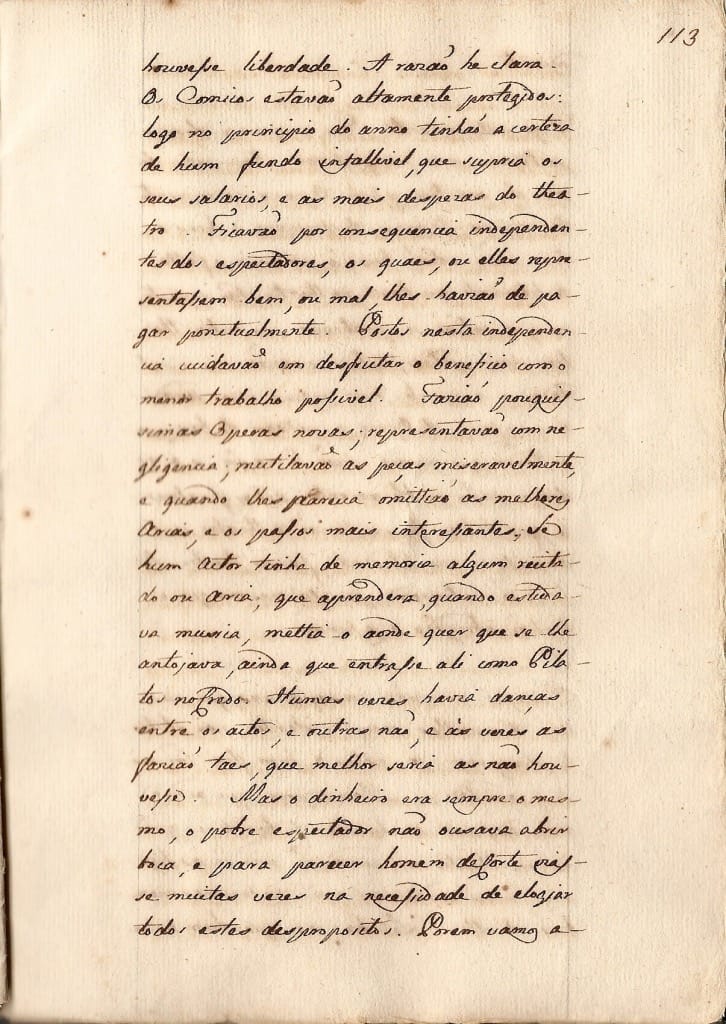 113
houvesse liberdade. A razaõ he clara.
Os Comicos estavaõ altamente protegidos:
logo no principio do anno tinhaõ a certeza
de hum fundo infallivel, que supria os
seus salarios, e as mais despezas do thea-
tro. Ficavaõ por consequencia independen-
tes dos espectadores, os quaes, ou elles repre-
sentassem bem, ou mal, lhes haviaõ de pa-
gar ponctualmente. Postos nesta independen-
cia cuidavaõ em desfrutar o beneficio com o
menor trabalho possivel. Fariaõ pouquis-
simas Operas novas; representavaõ com ne-
gligencia; mutilavaõ as peças miseravelmente,
e quando lhes parecia omittiaõ as melhores
Arias, e os passos mais interessantes. Se
hum Actor tinha de memoria algum recita-
do ou Aria, que aprendera, quando estuda-
va musica, mettia-o aonde quer que se lhe
antojava, ainda que entrasse ali como Pila-
tos no Credo. Humas vezes havia danças
entre os actos, e outras naõ, e ás vezes as
faziaõ taes, que melhor seria as naõ hou-
vesse. Mas o dinheiro era sempre o mes-
mo, o pobre espectador naõ ousava abrir
boca, e para parecer homem de Corte vias-
se muitas vezes na necessidade de elogiar
todos estes despropositos. Porem vamos a-